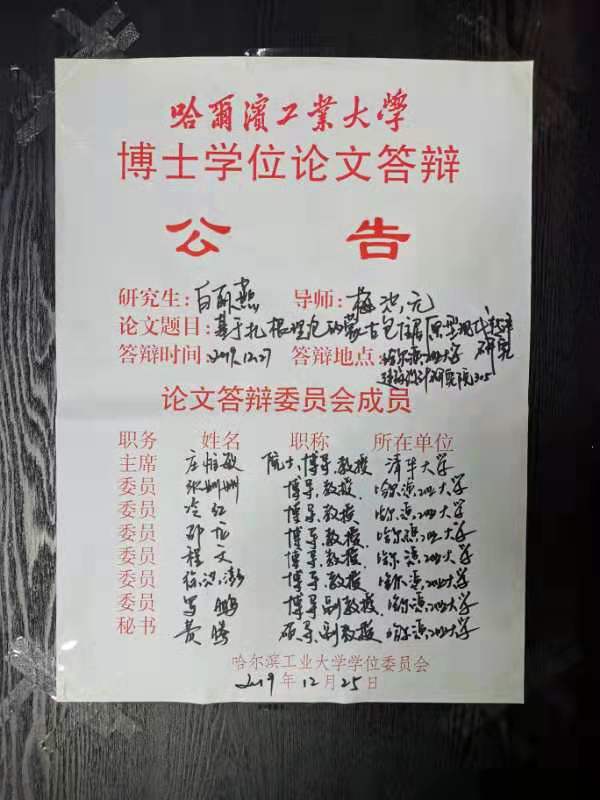 哈爾濱工業大學
博士学位论文答辩
公 告
研究生:白丽燕 导师:梅洪元
论文题目:基于扎根理论的蒙古包住居原型现代转译研究
答辩时间:2019.12.27 答辩地点:哈尔滨工业大学
建筑设计研究院305
论文答辩委员会成员
职务 姓名 职称 所在单位
主席 庄惟敏 院士、博导、教授 清华大学
委员 张姗姗 博导、教授 哈尔滨工业大学
委员 冷红 博导、教授 哈尔滨工业大学
委员 邵 博导、教授 哈尔滨工业大学
委员 程文 博导、教授 哈尔滨工业大学
委员 徐洪澎 博导、教授 哈尔滨工业大学
委员 罗鹏 博导、副教授 哈尔滨工业大学
秘书 费腾 硕导、副教授 哈尔滨工业大学
哈尔滨工业大学学位委员会
2019年12月25日